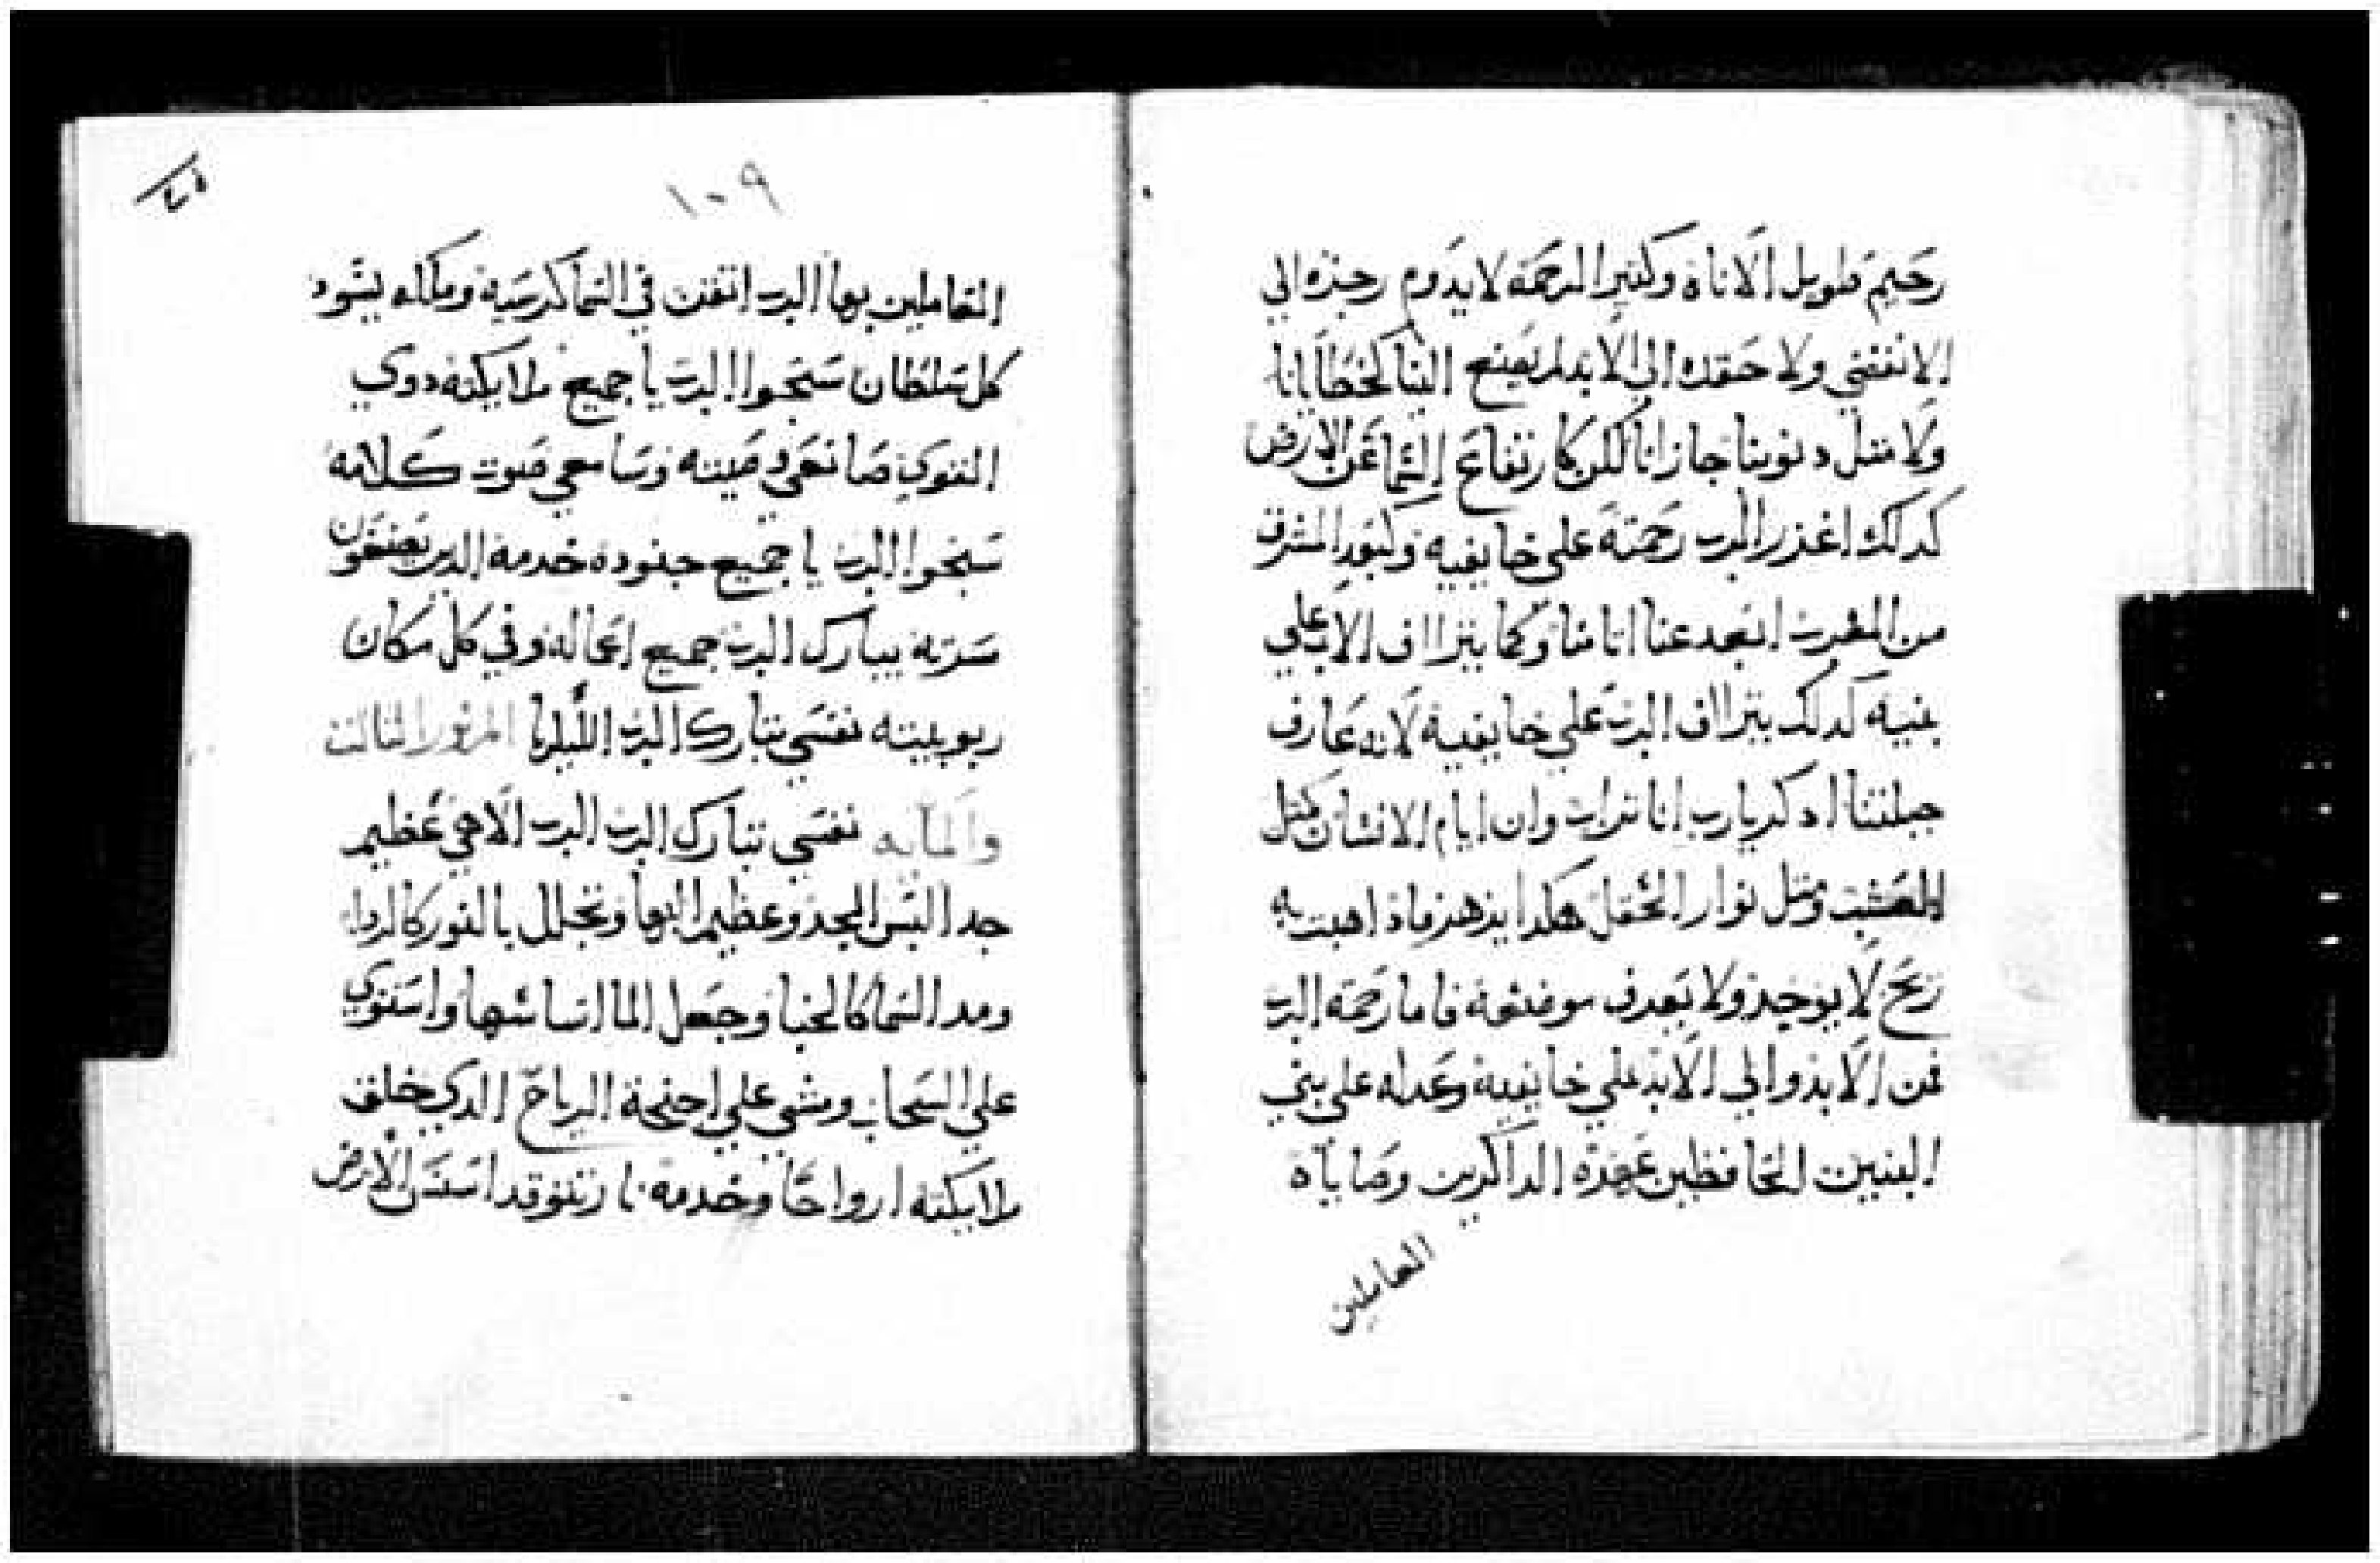 رحيم طويل الاناة وكثير الرحمة لا يدوم رجزه الي
الانقضي ولا حقده الي الابد لم يصنع الينا كخطايانا
ولا مثل دنوبنا جازانا لكن كارتفاع السما عن الارض
كدلك اغزر الرب رحمته علي خايفيه وكبعد المشرق
من المغرب ابعد عنا اتامنا وكما يتراف الاب علي
بنيه كدلك يتراف الرب علي خايفيه لانه عارف
جبلتنا ادكر يارب اننا تراب وان ايام الانسان كمثل
العشب ومثل نوار الحقل هكدا يزهر فاذا هبت به
ريح لا يوجد ولا يعرف موضعه فاما رحمة الرب
فمن الابد والي الابد علي خايفيه وعدله علي بني
البنين الحافظين عهده الداكرين وصاياه
العاملين
١٠٩
العاملين بها الرب اتقن في السما كرسيه وملكه يسود
كل سلطان سبحوا الرب يا جميع ملايكته دوي
القوي صانعي وصيته وسامعي صوت كلامه
سبحوا الرب يا جميع جنوده خدمه الدين يصنعون
مسرته يبارك الرب جميع اعماله وفي كل مكان
ربوبيته نفسي تبارك الرب الليلويا المزمور التالت
والمايه نفسي تبارك الرب الرب الاهي عظيم
جدا لبس المجد وعظيم البها وتجلل بالنور كالردا
ومد السما كالخبا وجعل الما اساسها واستوي
علي السحاب ومشي علي اجنحة الرياح الدي خلق
ملايكته ارواحا وخدمه نار تتوقد اسس الارض